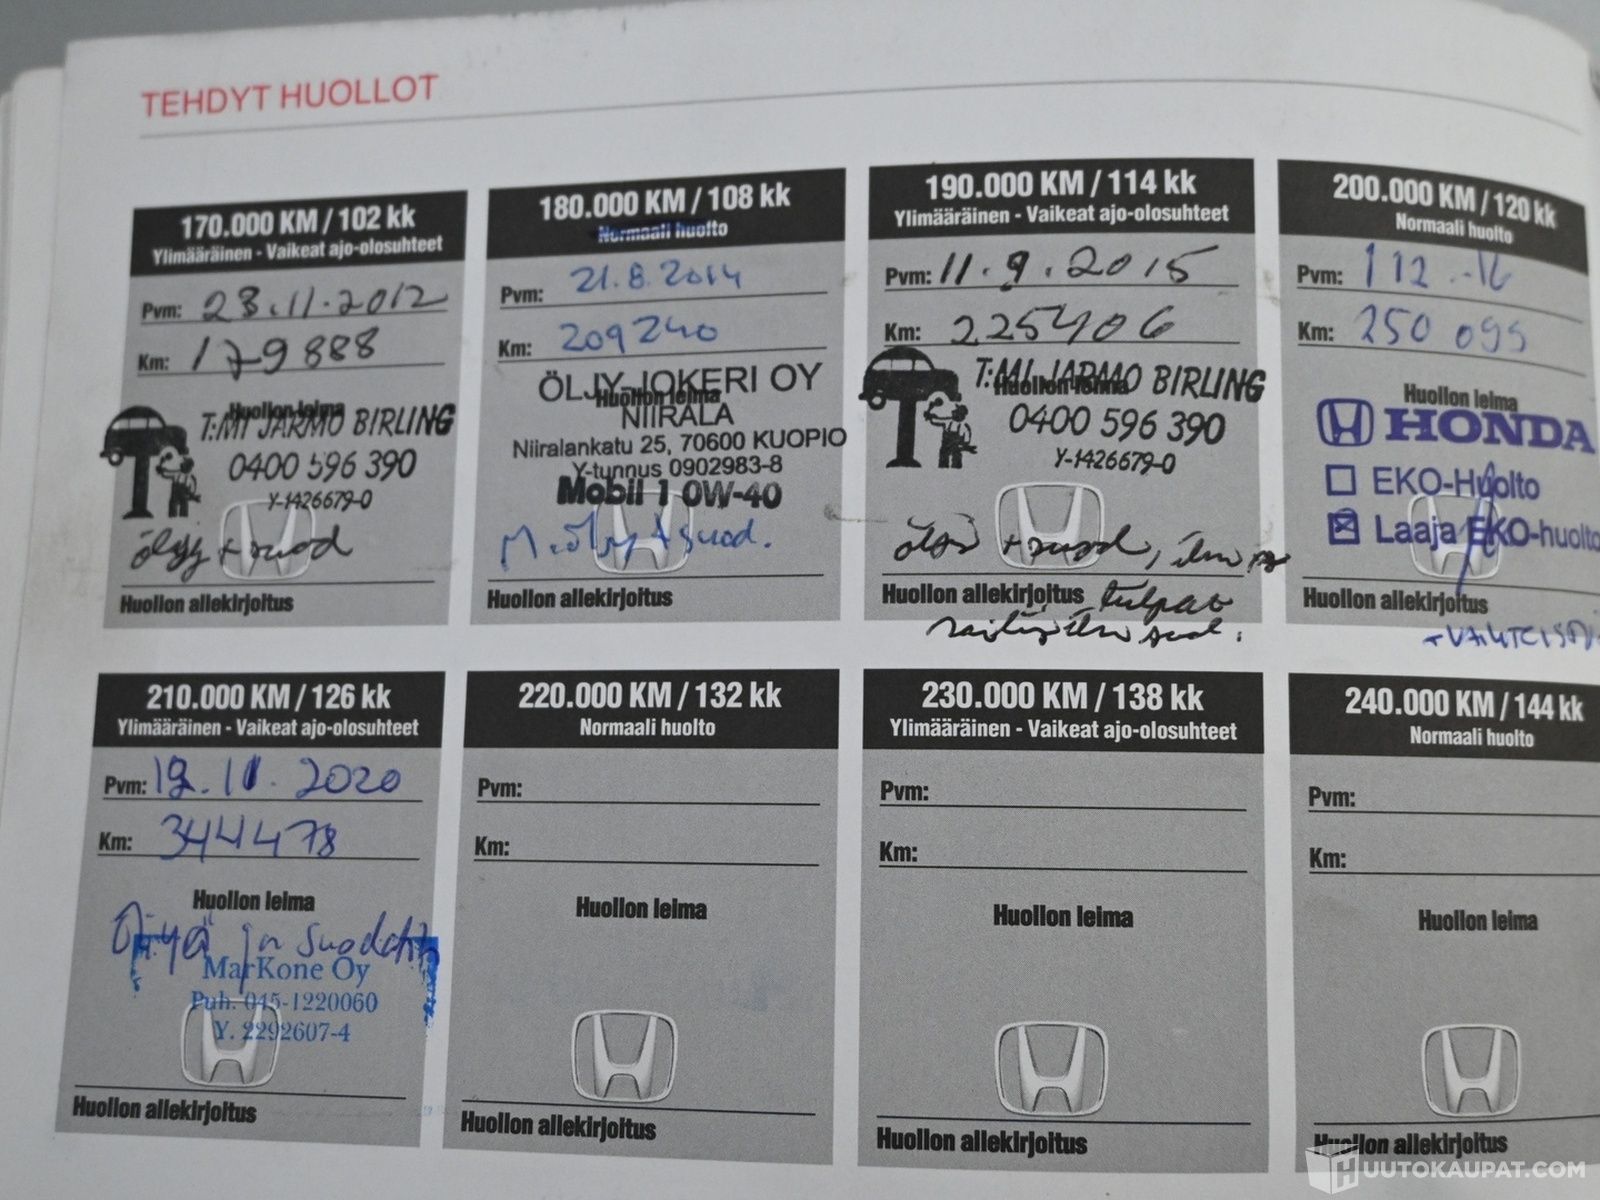 TEHDYT HUOLLOT
170.000 KM / 102 kk
Ylimääräinen - Vaikeat ajo-olosuhteet
Pvm: 23.11.2012
Km: 179888
Huollon leima
T:MI JARMO BIRLING
0400 596 390
Y-1426679-0
öljy + suod
Huollon allekirjoitus
180.000 KM / 108 kk
Normaali huolto
Pvm: 21.8.2014
Km: 209240
Huollon leima
ÖLJY-JOKERI OY
NIIRALA
Niiralankatu 25, 70600 KUOPIO
Y-tunnus 0902983-8
Mobil 1 0W-40
M.öljy + suod.
Huollon allekirjoitus
190.000 KM / 114 kk
Ylimääräinen - Vaikeat ajo-olosuhteet
Pvm: 11.9.2015
Km: 225406
Huollon leima
T:MI JARMO BIRLING
0400 596 390
Y-1426679-0
+ suod,
Huollon allekirjoitus
tulpat
suod.
200.000 KM / 120 kk
Normaali huolto
Pvm:
Km: 250 095
Huollon leima
HONDA
EKO-Huolto
Laaja EKO-huolto
Huollon allekirjoitus
210.000 KM / 126 kk
Ylimääräinen - Vaikeat ajo-olosuhteet
Pvm: 12.11.2020
Km: 344478
Huollon leima
Öljyä ja
MarKone Oy
Puh. 045-1220060
Y. 2292607-4
Huollon allekirjoitus
220.000 KM / 132 kk
Normaali huolto
Pvm:
Km:
Huollon leima
Huollon allekirjoitus
230.000 KM / 138 kk
Ylimääräinen - Vaikeat ajo-olosuhteet
Pvm:
Km:
Huollon leima
Huollon allekirjoitus
240.000 KM / 144 kk
Normaali huolto
Pvm:
Km:
Huollon leima
Huollon allekirjoitus
HUUTOKAUPAT.COM